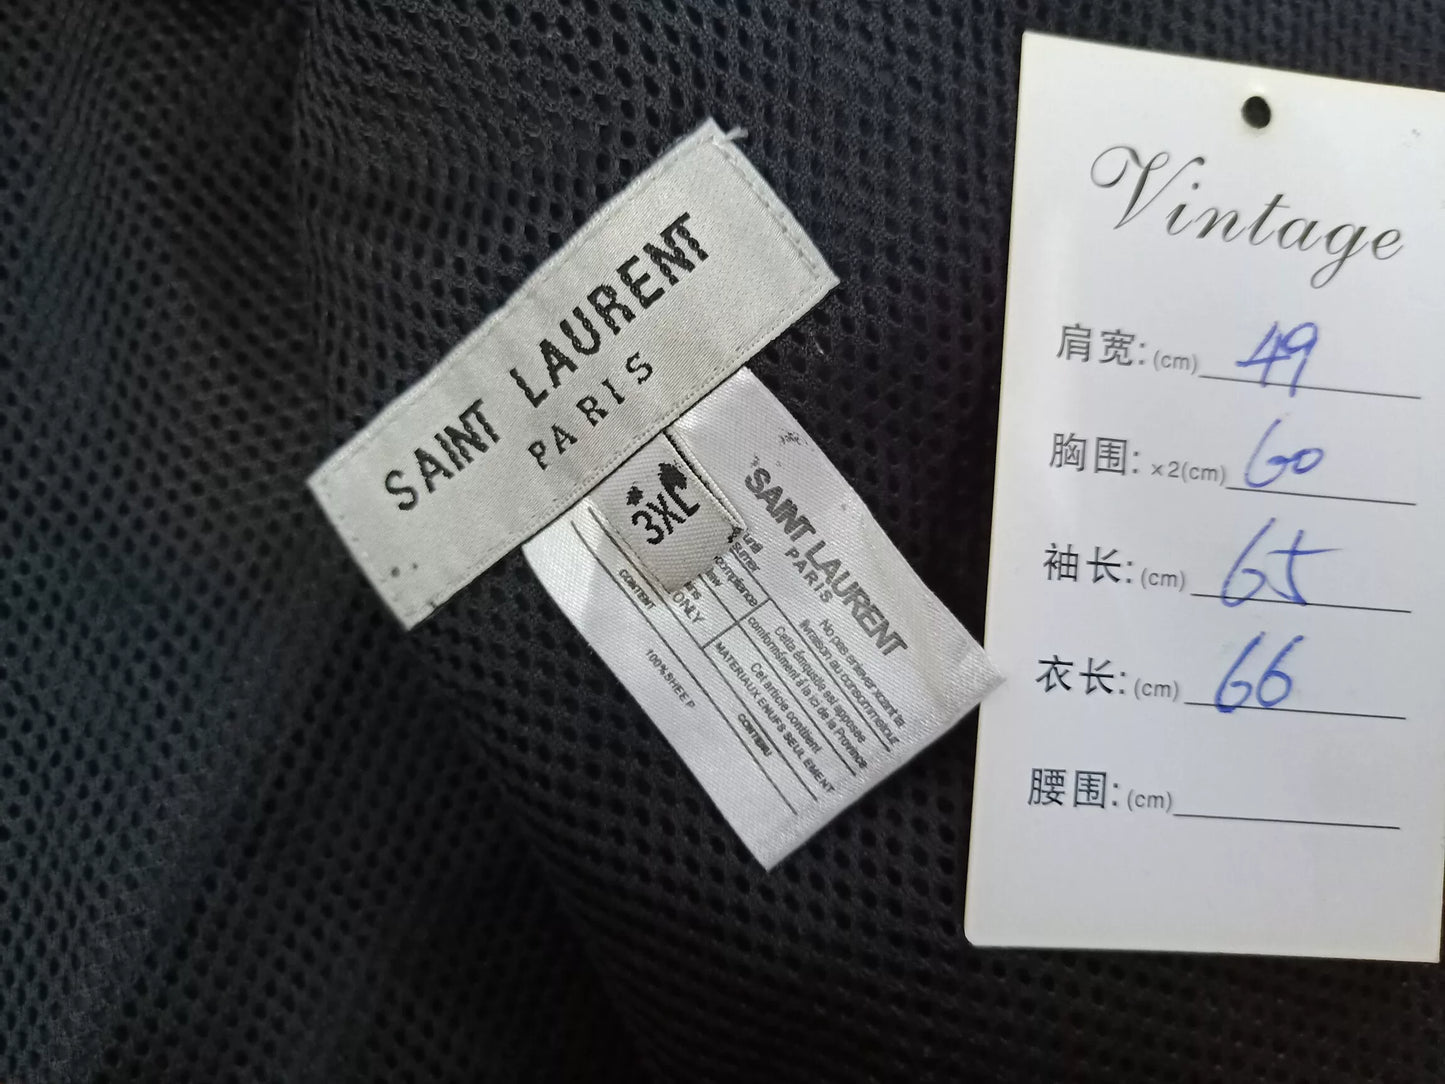 SAINT LAURENT
PARIS
3XL
SAINT LAURENT
PARIS
No pas enlever avant la
livraison au consommateur
Cette étiquette est apposée
conformément à la loi de la Province
Cet article contient
MATERIAUX ENUFS SEULEMENT
CONTENU
ONLY
CONTENT
100%SHEEP
Vintage
肩宽:(cm) 49
胸围:×2(cm) 60
袖长:(cm) 65
衣长:(cm) 66
腰围:(cm)